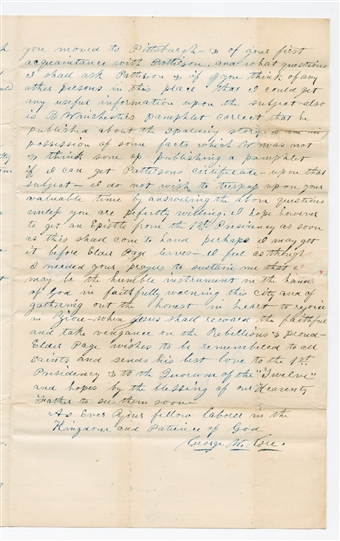 you moved to Pittsburgh - & of your first
acquaintance with Patterson, and what questions
I shall ask Pattison & if you think of any
other persons in this place that I could get
any useful information upon the subject also
is B. Winchesters pamphlet correct that he
published about the Spalding story I am in
possession of some facts which W was not
& think som of publishing a pamphlet
if I can get Pattersons certificate - upon that
subject - I do not wish to trespap upon your
valuable time by answering the above questions
unlep you are perfectly willing. I hope however
to get an Epistle from the 1st Presidency as soon
as this shall come to hand perhaps I may get
it before Elder Page leaves - I feel as though
I needed your prayers to sustain me that I
may be the humble instrument in the hands
of God in faithfully warning this city and of
gathering out the honest in heart to rejoice
in Zion - when Jesus shall reward the faithful
and take vengance on the Rebellious &
Elder Page wishes to be remembered to all
saints and sends his best love to the 1st
Presidency & to the Quorum of the "Twelve"
and hopes by the blessing of our Heavenly
Father to see them soon -
As Ever Your fellow laborer in the
Kingdom and Patience of God
George W.